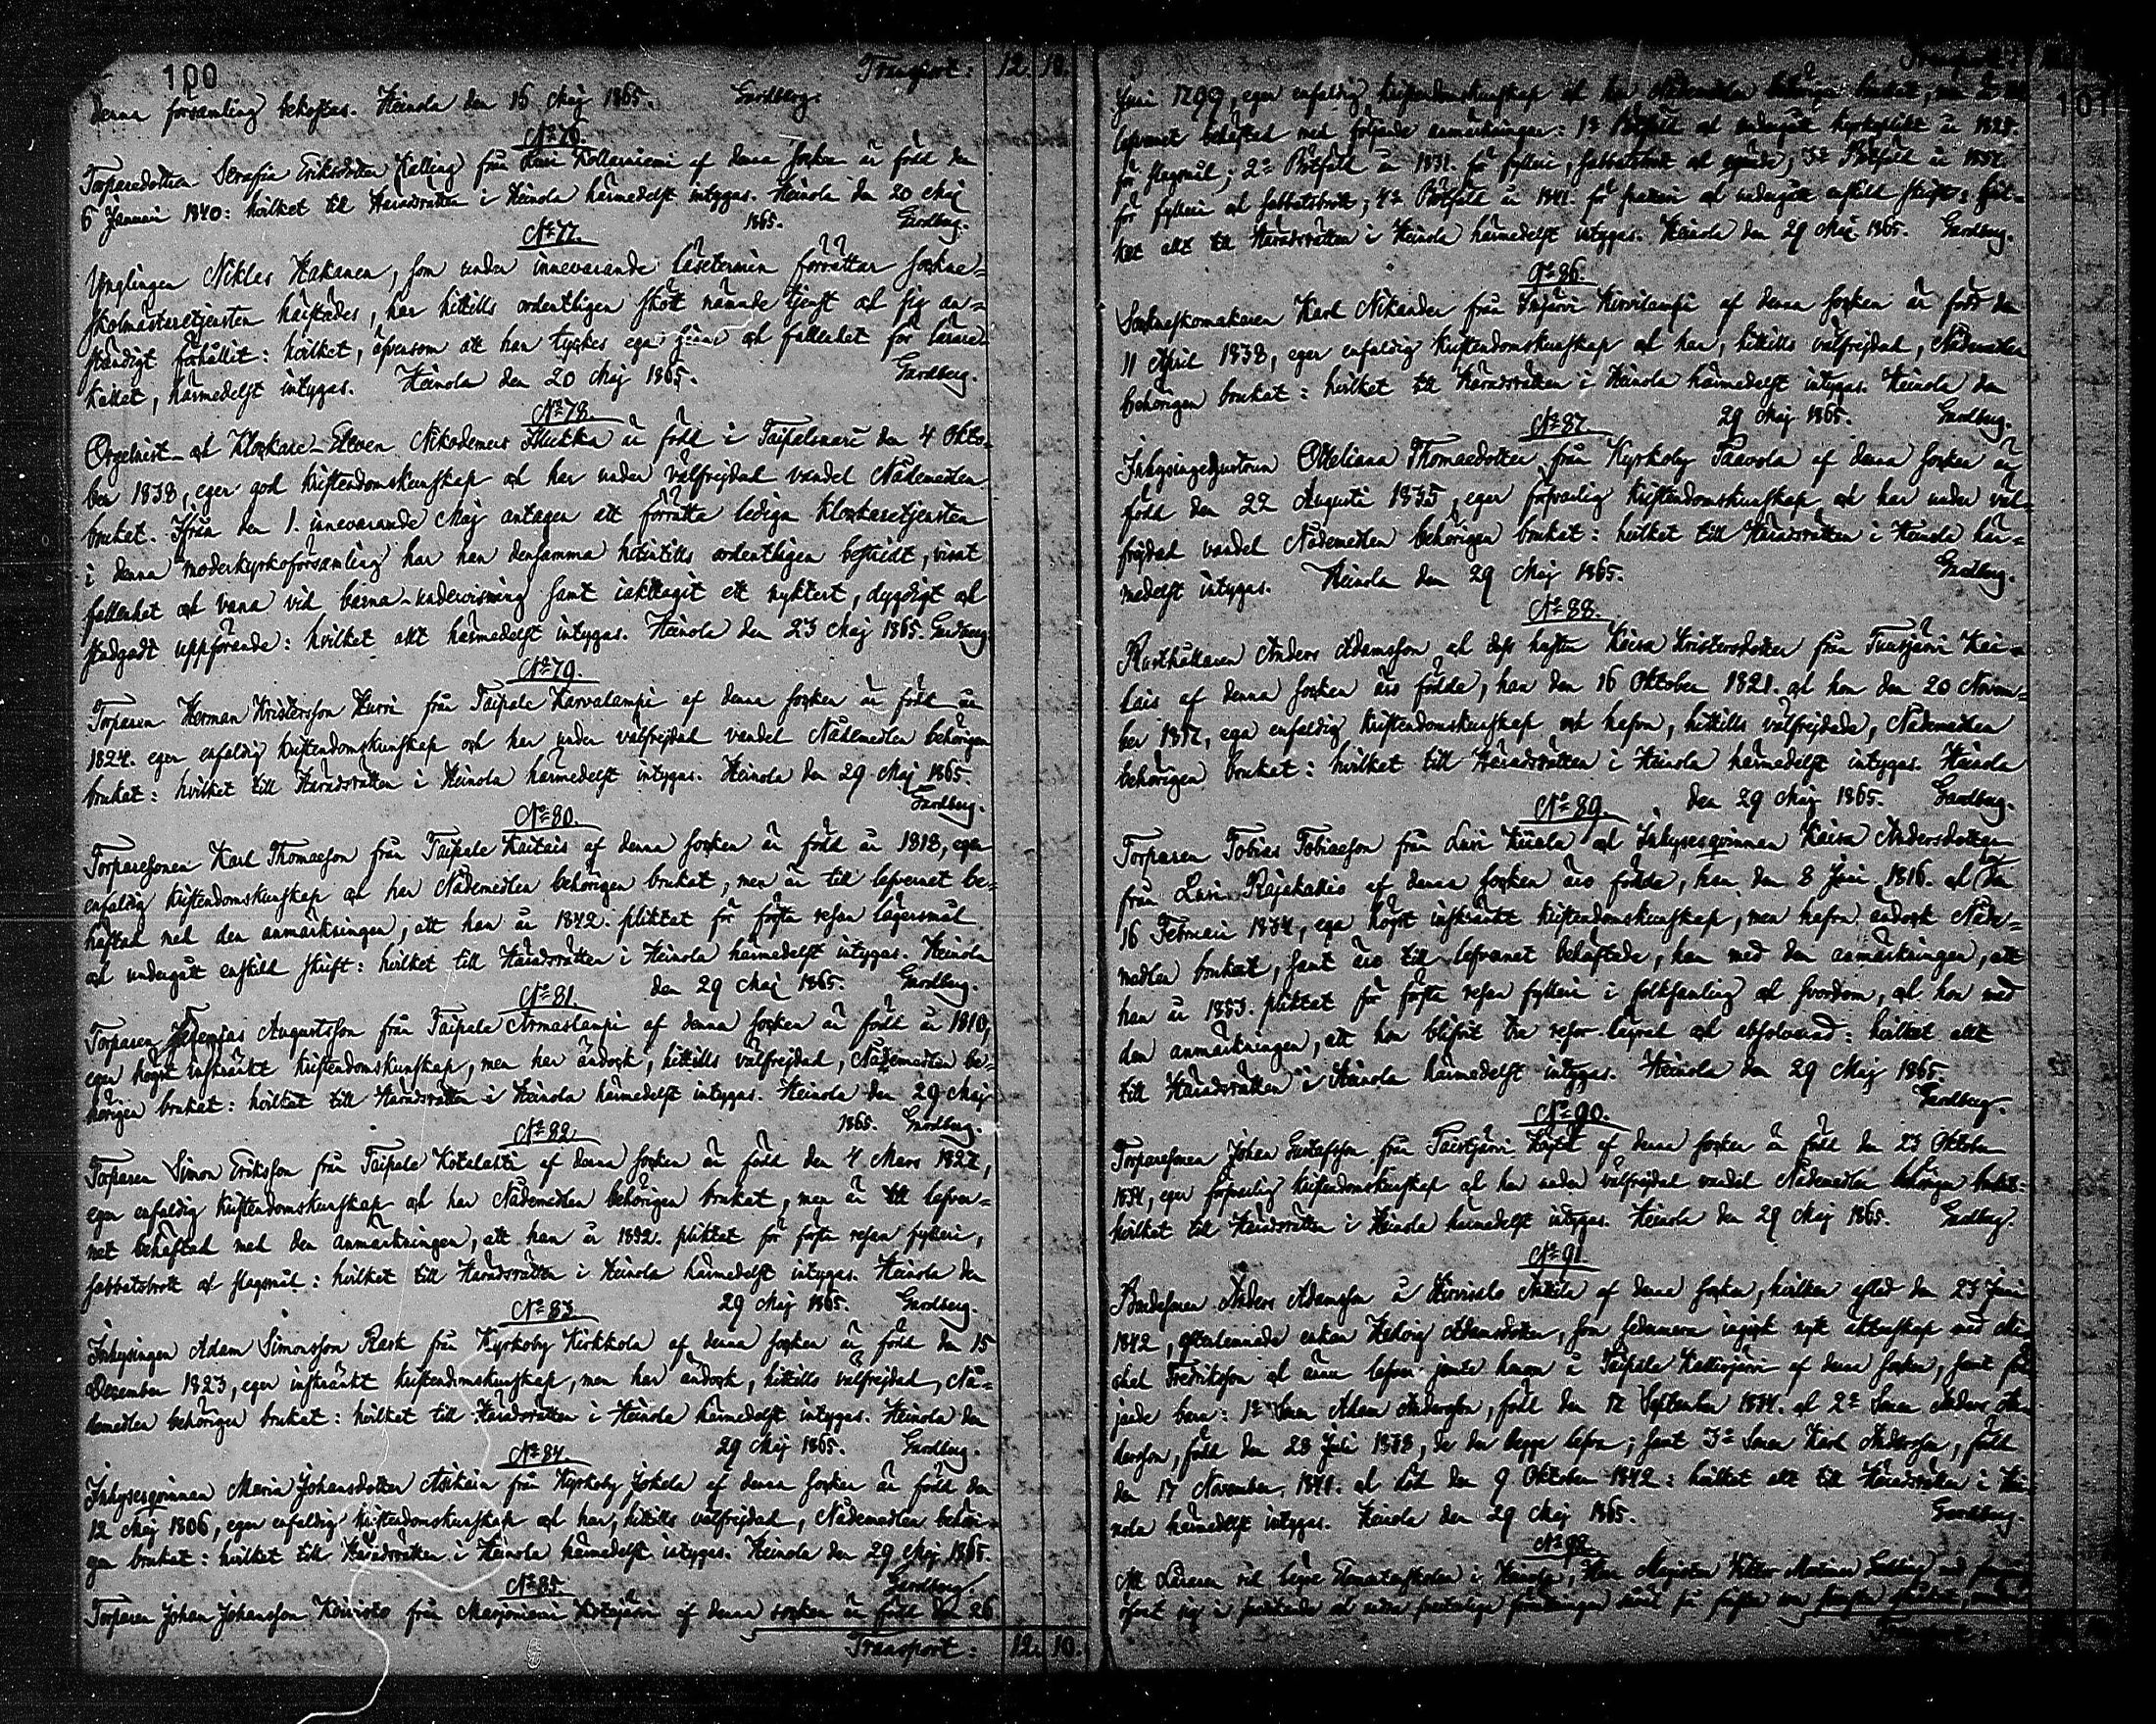 100
Transport: 12. 10.
denna församling bekostas. Heinola den 15 Maj 1865. Gardberg.
No 76.
Torparedottren Serafia Eriksdotter Kalling från Lusi Kollarniemi af denna socken är född den
6 Januari 1840: hvilket till Häradsrätten i Heinola härmedelst intygas. Heinola den 20 Maj
1865. Gardberg.
No 77.
Ynglingen Niklas Hakanen, som under innevarande läsetermin förrättar sockne-
skolmästaretjensten härstädes, har hittills ordentligen skött nämnde tjenst och sig an-
ständigt förhållit: hvilket, äfvensom att han tyckes ega och fallenhet för lärare-
kallet, härmedelst intygas. Heinola den 20 Maj 1865. Gardberg.
No 78.
Orgelnist- och Klockare-Eleven Nikodemus Hlukka är född i Taipalsaari den 4 Okto-
ber 1838, eger god kristendomskunskap och har under välfrejdad vandel Nådemedlen
brukat. Ifrån den 1. innevarande Maj antagen att förrätta lediga Klockaretjensten
i denna moderkyrkoförsamling har han densamma hitintills ordentligen bestridt, visat
fallenhet och vana vid barna-undervisning samt iakttagit ett nyktert, dygdigt och
stadgadt uppförande: hvilket allt härmedelst intygas. Heinola den 23 Maj 1865. Gardberg.
No 79.
Torparen Herman Kristersson Kurri från Taipale Karvalampi af denna socken är född år
1824. eger enfaldig kristendomskunskap och har under välfrejdad vandel Nådemedlen behörigen
brukat: hvilket till Häradsrätten i Heinola härmedelst intygas. Heinola den 29 Maj 1865.
Gardberg.
No 80.
Torparesonen Karl Thomasson från Taipale Kaitais af denna socken är född år 1818, eger
enfaldig kristendomskunskap och har Nådemedlen behörigen brukat, men är till lefvernet be-
häftad med den anmärkningen, att han år 1842. pliktat för första resan lägersmål
och undergått enskild skrift: hvilket till Häradsrätten i Heinola härmedelst intygas. Heinola
den 29 Maj 1865. Gardberg.
No 81.
Torparen Augustsson från Taipale Armaslampi af denna socken är född år 1810,
eger högst inskränkt kristendomskunskap, men har ändock, hittills välfrejdad, Nådemedlen be-
hörigen brukat: hvilket till Häradsrätten i Heinola härmedelst intygas. Heinola den 29 Maj
1865. Gardberg.
No 82.
Torparen Simon Eriksson från Taipale Kotalahti af denna socken är född den 4 Mars 1822,
eger enfaldig kristendomskunskap och har Nådemedlen behörigen brukat, men är till lefver-
net behäftad med den anmärkningen, att han år 1842. pliktat för första resan fylleri,
sabbatsbrott och slagsmål: hvilket till Häradsrätten i Heinola härmedelst intygas. Heinola den
29 Maj 1865. Gardberg.
No 83.
Inhysingen Adam Simonsson Rask från Kyrkoby Kirkkola af denna socken är född den 15
December 1823, eger inskränkt kristendomskunskap, men har ändock, hittills välfrejdad, Nå-
demedlen behörigen brukat: hvilket till Häradsrätten i Heinola härmedelst intygas. Heinola den
29 Maj 1865. Gardberg.
No 84.
Inhysesqvinnan Maria Johansdotter Asikain från Kyrkoby Jokela af denna socken är född den
12 Maj 1806, eger enfaldig kristendomskunskap och har, hittills välfrejdad, Nådemedlen behöri-
gen brukat: hvilket till Häradsrätten i Heinola härmedelst intygas. Heinola den 29 Maj 1865.
Gardberg.
No 85.
Torparen Johan Johansson Koivisto från Marjoniemi Kotajärvi af denna socken är född den 26
Transport: 12. 10.
Transport:
101
Juni 1799, eger enfaldig kristendomskunskap och har Nådemedlen behörigen brukat, men är till
lefvernet behäftad med följande anmärkningar: 1o Bötfäld och undergått kyrkoplikt år 1828.
för slagsmål; 2o Bötfäld år 1831. för fylleri, sabbatsbrott och; 3o Bötfäld år 1837.
för fylleri och sabbatsbrott; 4o Bötfäld år 1841. för och undergått enskild skrift: hvil-
ket allt till Häradsrätten i Heinola härmedelst intygas. Heinola den 29 Maj 1865. Gardberg.
No 86.
Sockneskomakaren Karl Nikander från Imjärvi Hirvilampi af denna socken är född den
11 April 1838, eger enfaldig kristendomskunskap och har, hittills välfrejdad, Nådemedlen
behörigen brukat: hvilket till Häradsrätten i Heinola härmedelst intygas. Heinola den
29 Maj 1865. Gardberg.
No 87.
Otteliana Thomasdotter från Kyrkoby Paavola af denna socken är
född den 22 Augusti 1835, eger försvarlig kristendomskunskap och har under väl-
frejdad vandel Nådemedlen behörigen brukat: hvilket till Häradsrätten i Heinola här-
medelst intygas. Heinola den 29 Maj 1865. Gardberg.
No 88.
Rusthållaren Anders Adamsson och dess hustru Kaisa Kristersdotter från Tuusjärvi Kai-
lais af denna socken äro födde, han den 16 Oktober 1821. och hon den 20 Novem-
ber 1817, ega enfaldig kristendomskunskap och hafva, hittills välfrejdade, Nådemedlen
behörigen brukat: hvilket till Häradsrätten i Heinola härmedelst intygas. Heinola
den 29 Maj 1865. Gardberg.
No 89.
Torparen Tobias Tobiasson från Lusi Kuala och Inhysesqvinnan Kaisa Andersdotter
från Lusi Rajakallio af denna socken äro födde, han den 8 Juni 1816. och hon den
16 Februari 1834, ega högst inskränkt kristendomskunskap, men hafva ändock Nåde-
medlen brukat, samt äro till lefvernet behäftade, han med den anmärkningen, att
han år 1853. pliktat för första resan fylleri i folksamling och svordom, och hon med
den anmärkningen, att hon blifvit tre resor lägrad och absolverad: hvilket allt
till Häradsrätten i Heinola härmedelst intygas. Heinola den 29 Maj 1865.
Gardberg.
No 90.
Torparesonen Johan Gustafsson från Taistjärvi af denna socken är född den 23 Oktober
1834, eger försvarlig kristendomskunskap och har under välfrejdad vandel Nådemedlen behörigen brukat:
hvilket till Häradsrätten i Heinola härmedelst intygas. Heinola den 29 Maj 1865. Gardberg.
No 91.
Bondesonen Anders Adamsson å Hirvisalo Anttila af denna socken, hvilken afled den 23 Juni
1842, efterlemnade enkan Hedvig Adamsdotter, som sedermera ingick nytt äktenskap med Mi-
chel Fredriksson och ännu lefver jemte honom å Taipale Kalliojärvi af denna socken, samt föl-
jande barn: 1o Sonen Adam Andersson, född den 12 September 1834. och 2o Sonen Anders An-
dersson, född den 28 Juli 1838, de der begge lefva; samt 3o Sonen Karl Andersson, född
den 17 November 1841. och död den 9 Oktober 1842: hvilket allt till Häradsrätten i Hei-
nola härmedelst intygas. Heinola den 29 Maj 1865. Gardberg.
No 92.
Att Läraren vid Elementarskolan i Heinola, Herr Magister Viktor
öfvat sig i
Transport: